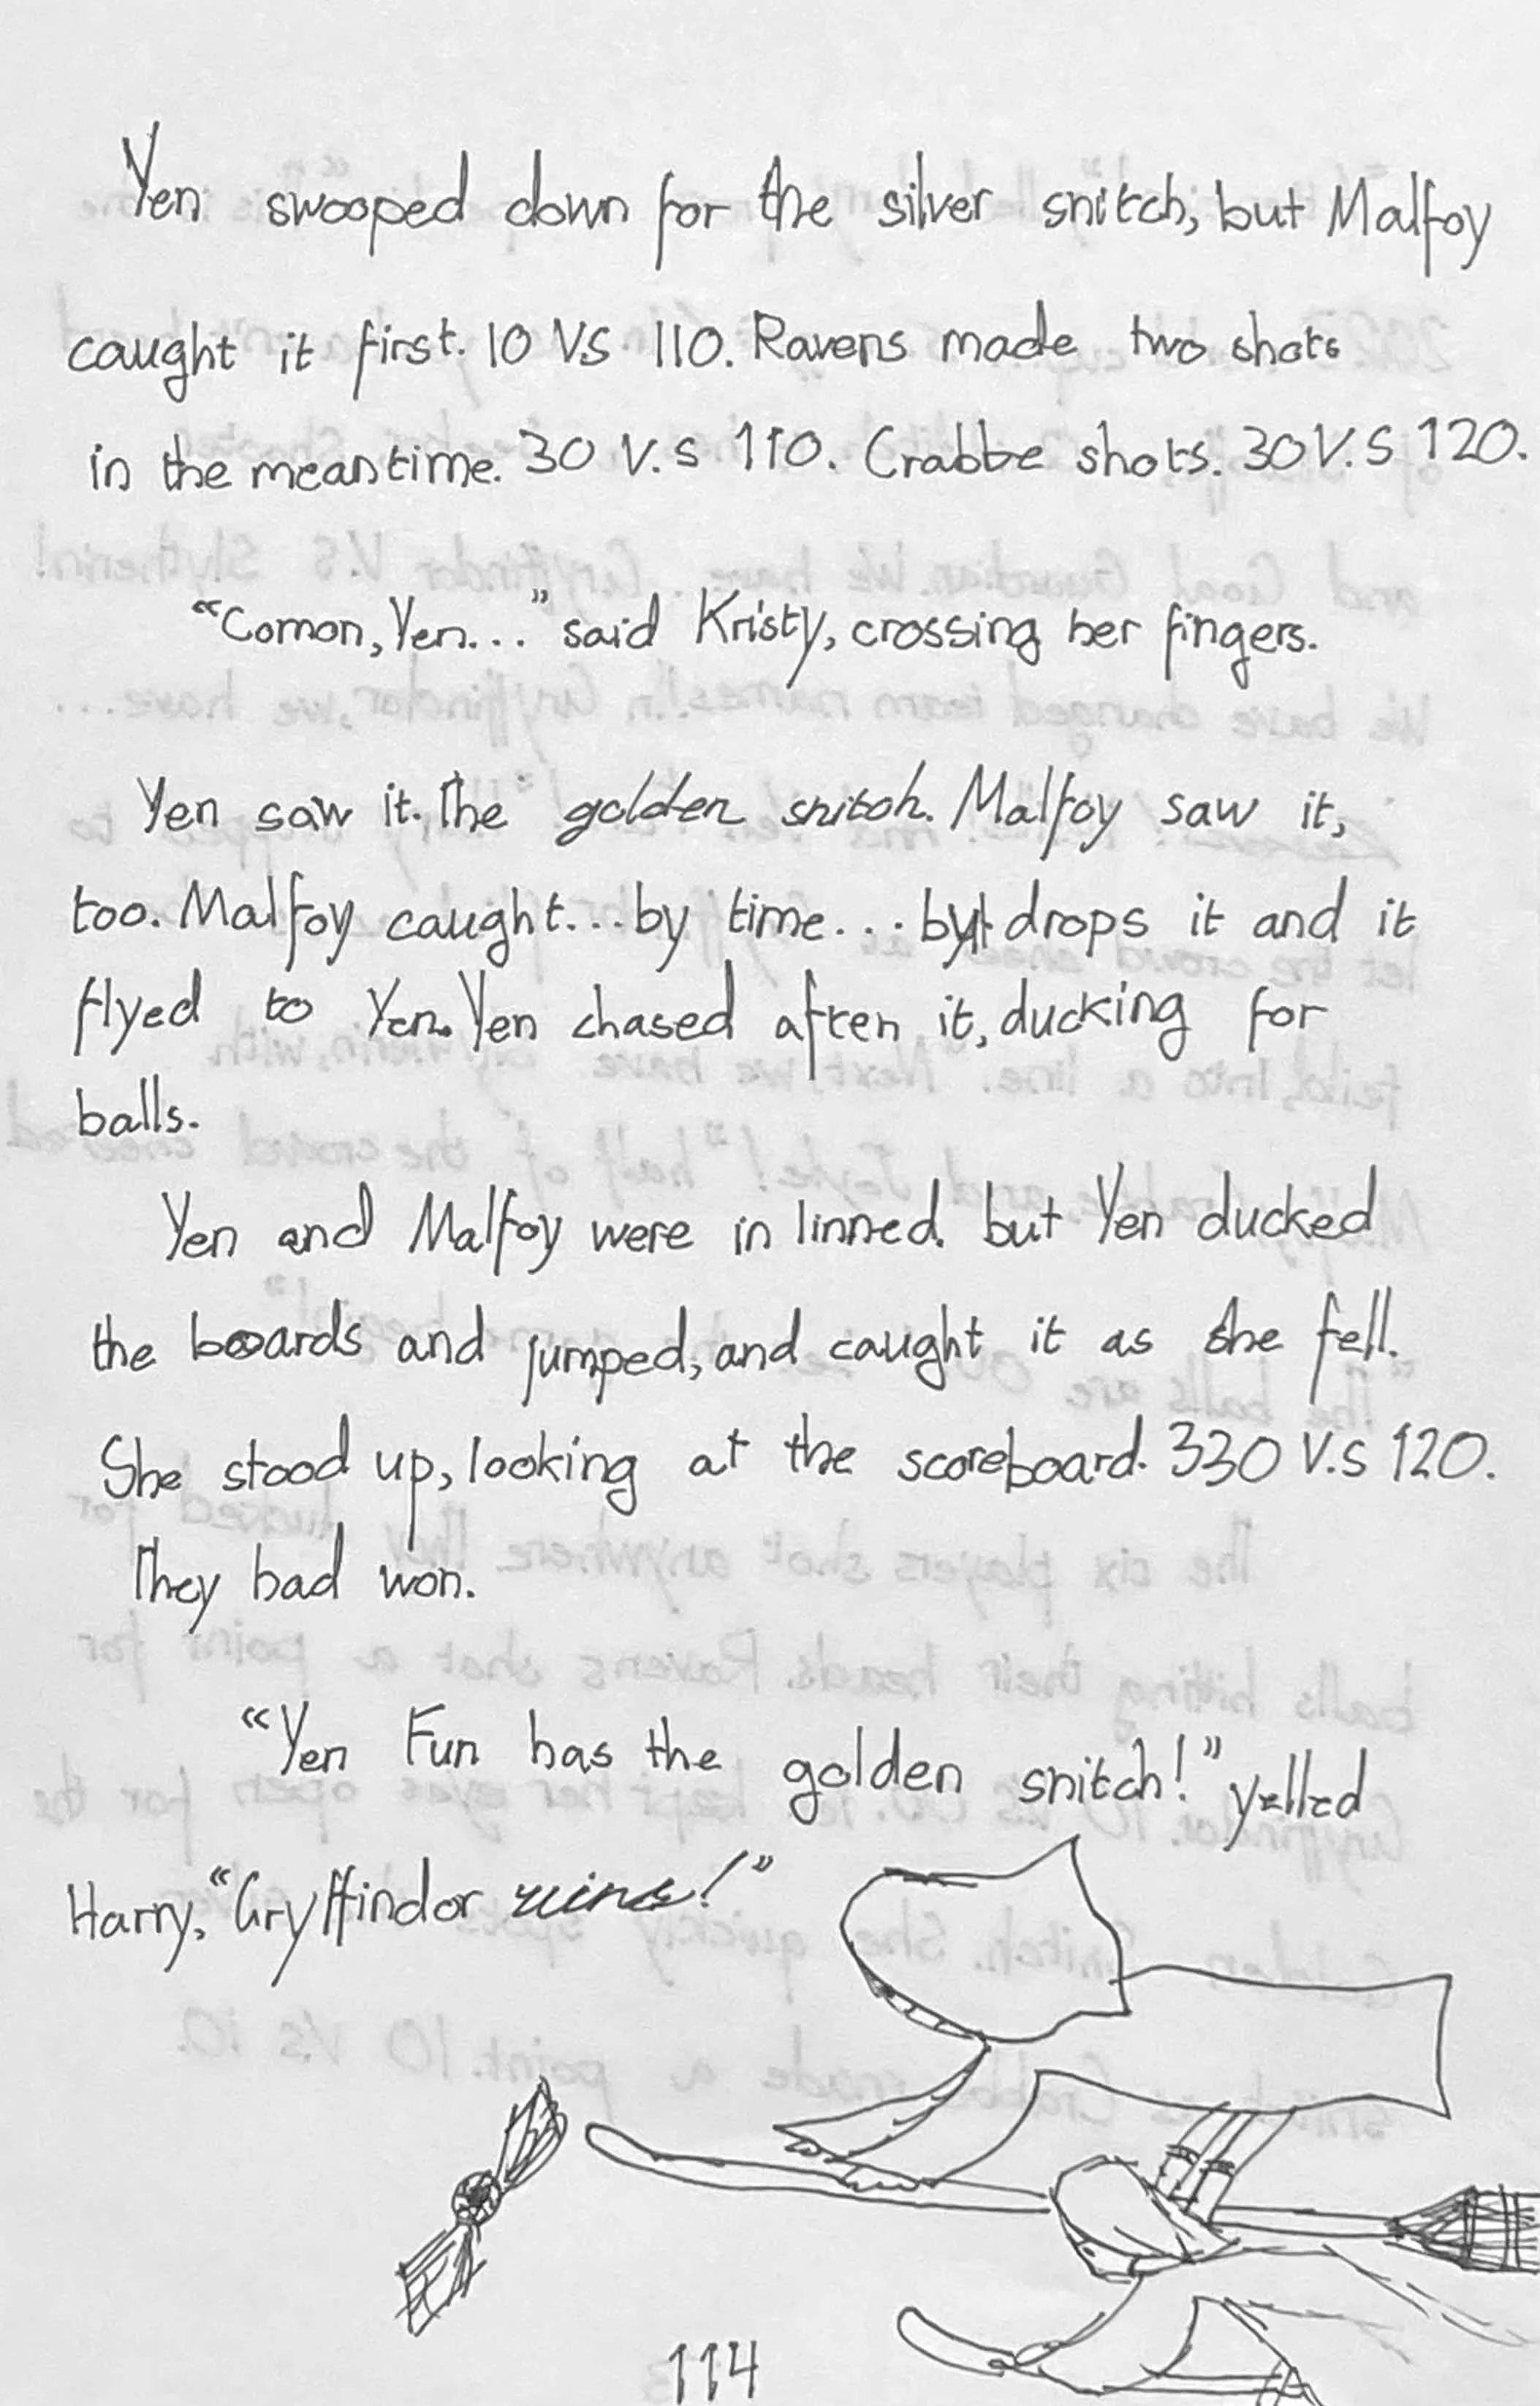 Yen swooped down for the silver snitch, but Malfoy
caught it first. 10 VS 110. Ravens made two shots
in the meantime. 30 V.S 110. Crabbe shots. 30 V.S 120.
“Comon, Yen...” said Kristy, crossing her fingers.
Yen saw it. The golden snitch. Malfoy saw it,
too. Malfoy caught...by time...but drops it and it
flyed to Yen. Yen chased after it, ducking for
balls.
Yen and Malfoy were in linned. but Yen ducked
the boards and jumped, and caught it as she fell.
She stood up, looking at the scoreboard. 330 V.S 120.
They had won.
“Yen Fun has the golden snitch!” yelled
Harry, “Gryffindor wins!”
114